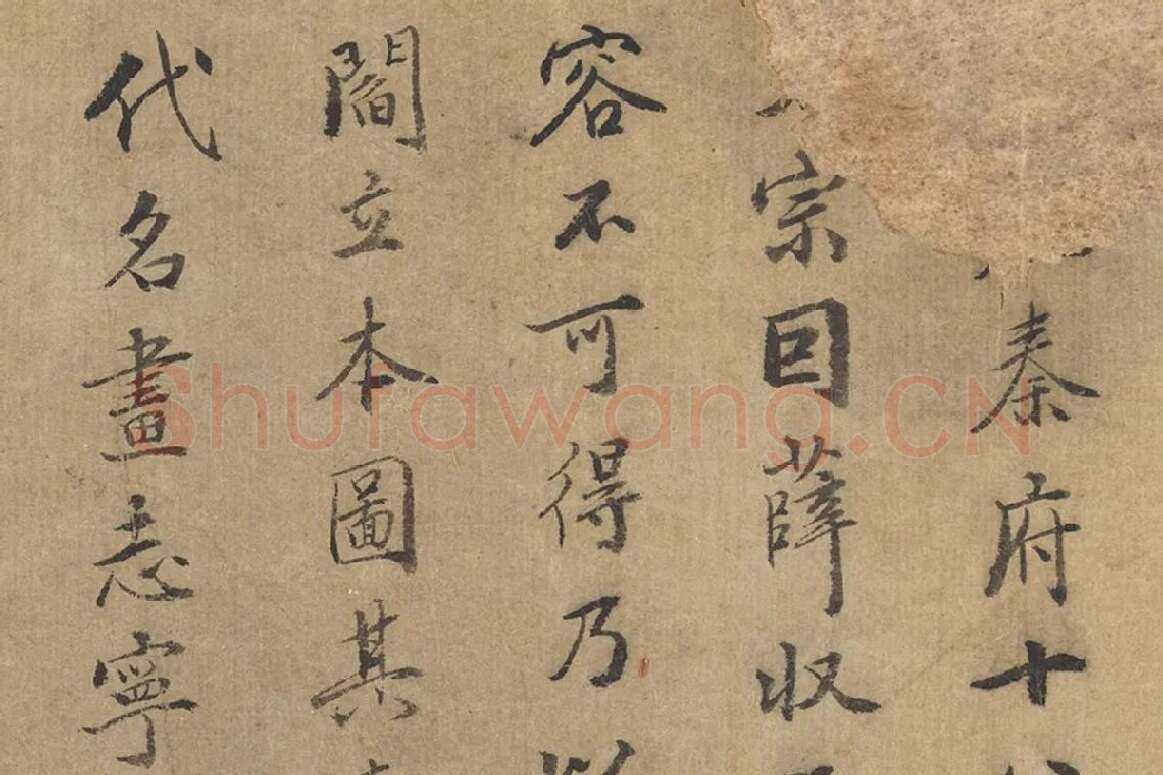 秦府十
宗因薛収
容不可得乃以
閻立本圖其
代名畫志寧
Shufawang.CN